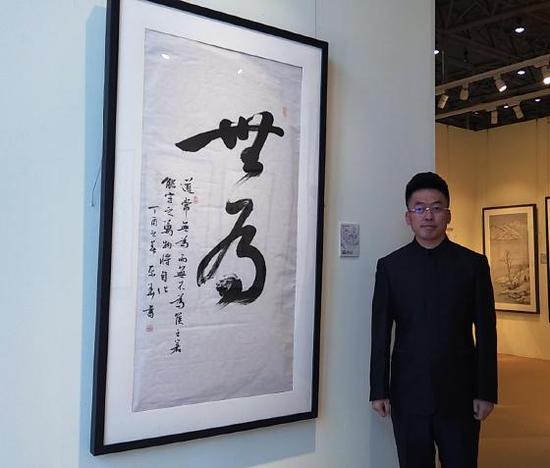 無為
道常無為而無不為侯王若
能守之萬物將自化
丁酉